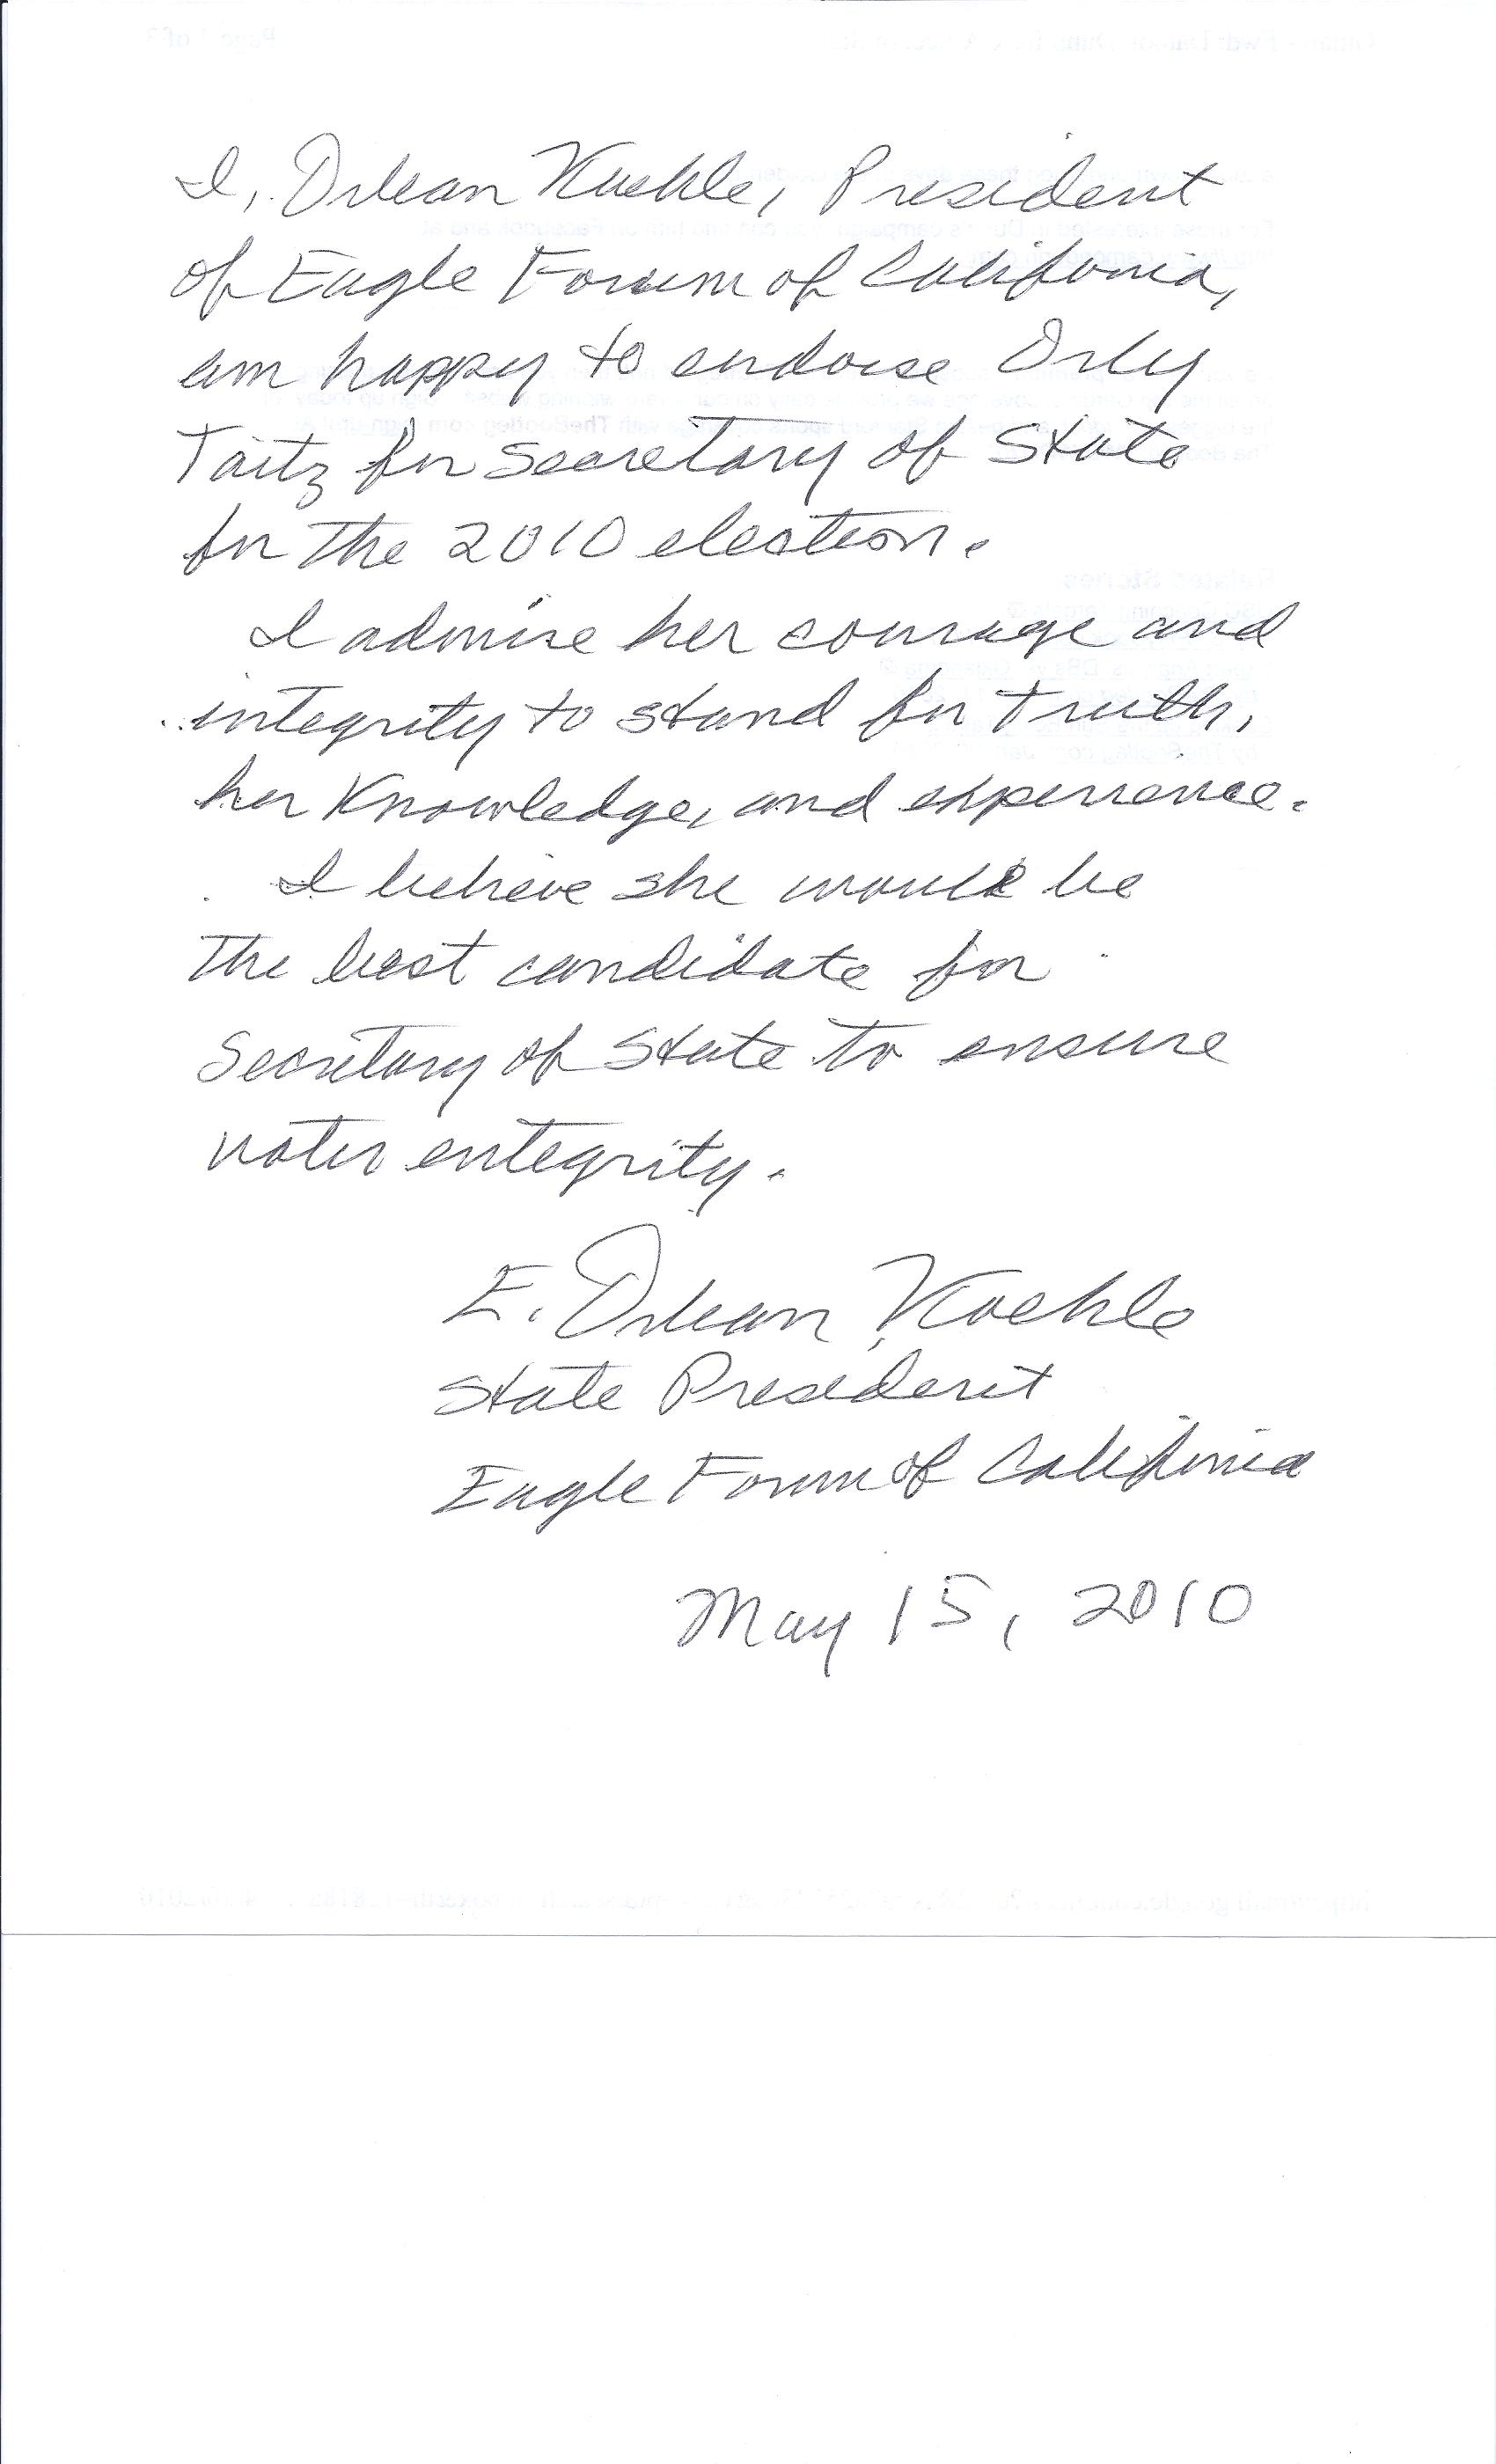 I, Orlean Koehle, President
of Eagle Forum of California,
am happy to endorse Orly
Taitz for Secretary of State
for the 2010 election.
I admire her courage and
integrity to stand for truth,
her knowledge, and experience.
I believe she would be
the best candidate for
Secretary of State to ensure
voter entegrity.
E. Orlean Koehle
State President
Eagle Forum of California
May 15, 2010